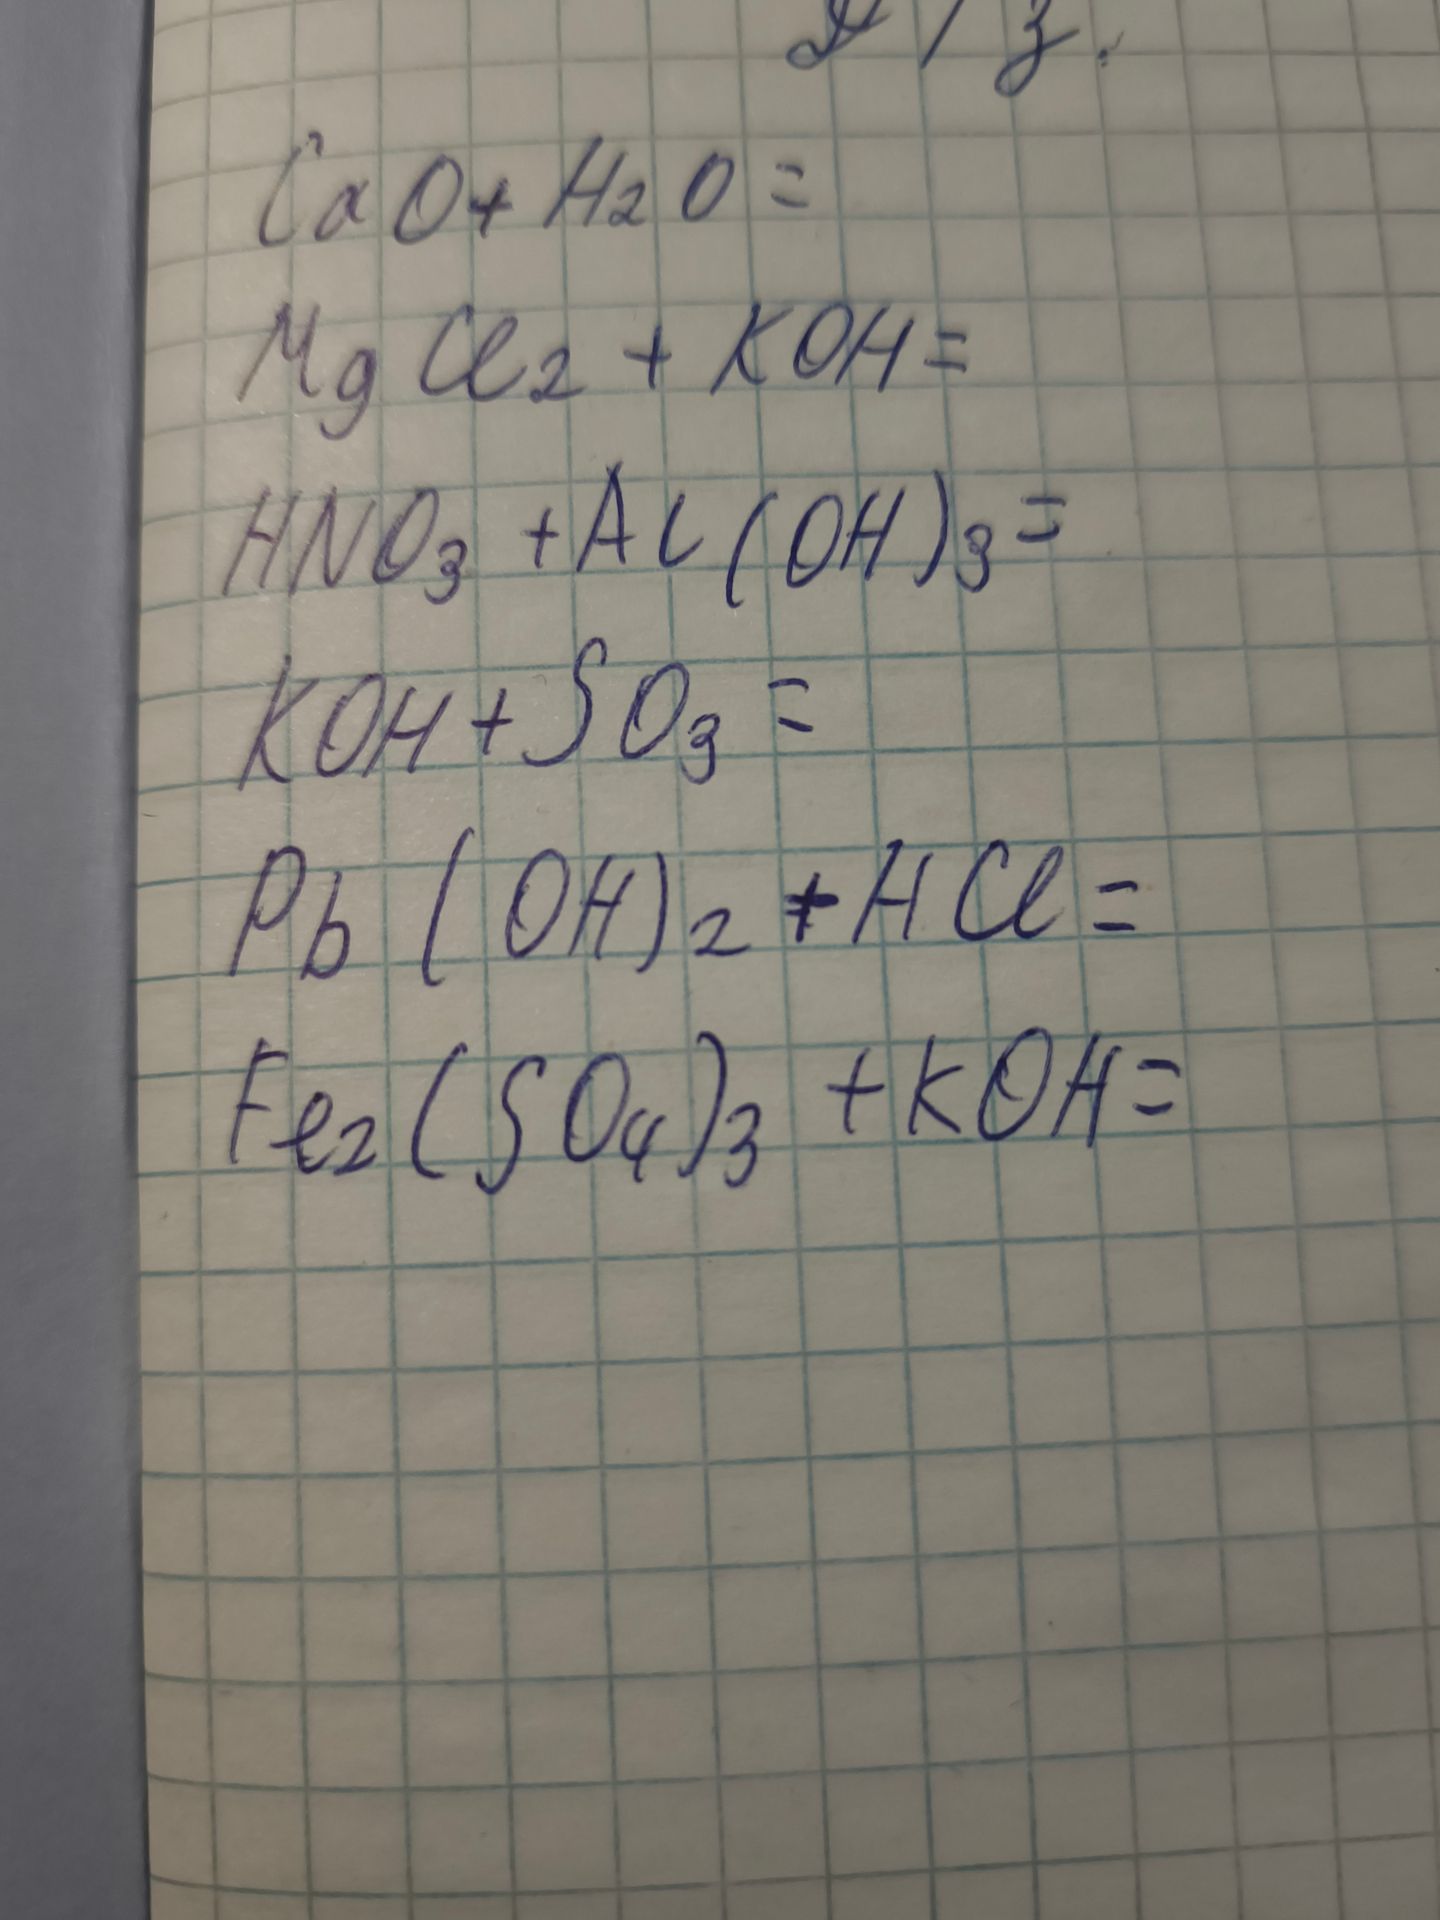 Д/з.
CaO + H2O =
MgCl2 + KOH =
HNO3 + Al(OH)3 =
KOH + SO3 =
Pb(OH)2 + HCl =
Fe2(SO4)3 + KOH =